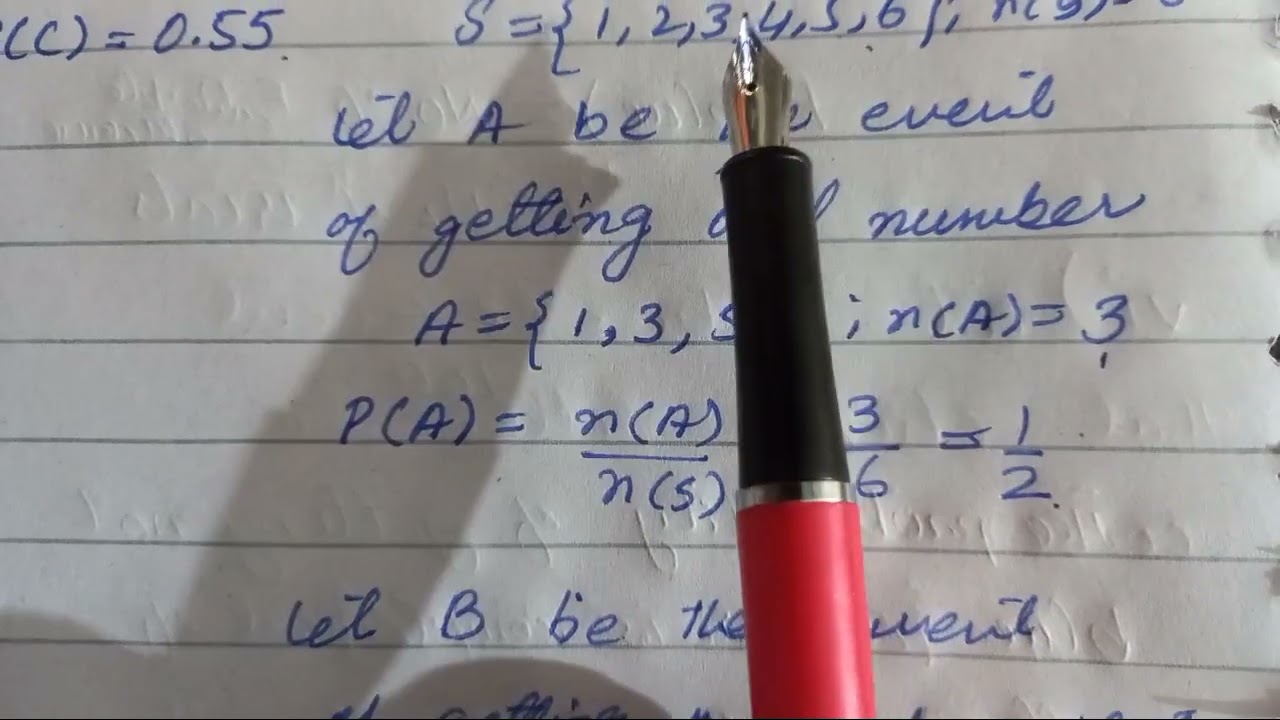 (C) = 0.55 S = {1, 2, 3, 4, 5, 6}; n(S) =
Let A be event
of getting number
A = {1, 3, 5 ; n(A) = 3
P(A) = n(A)/n(S) 3/6 = 1/2
Let B be the event
of getting